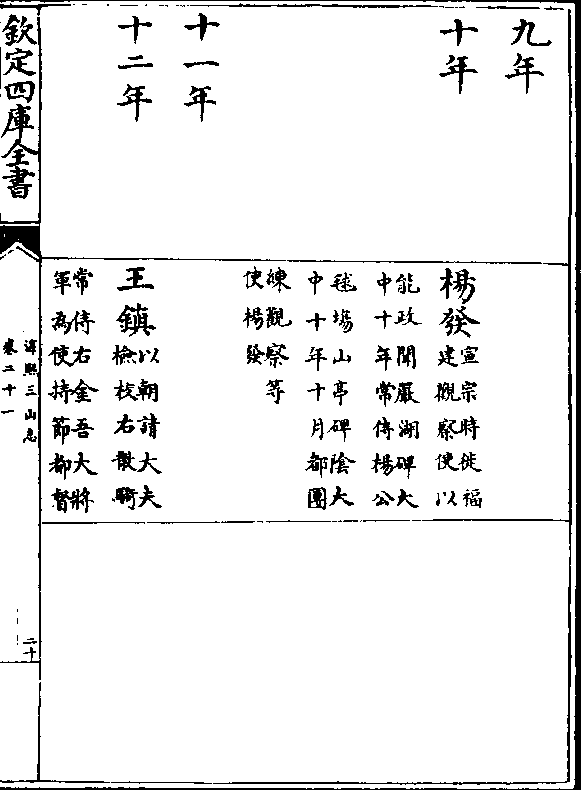 九年
十年
楊發
宣宗時徙福
建觀察使以
能政聞嚴湖碑大
中十年常侍楊公
毬塲山亭碑陰大
中十年十月都團
練觀察等
使楊發
十一年
十二年
王鎮
以朝請大夫
檢校右散騎
常侍右金吾大將
軍為使持節都督
欽定四庫全書
淳熙三山志
卷二十一
二十